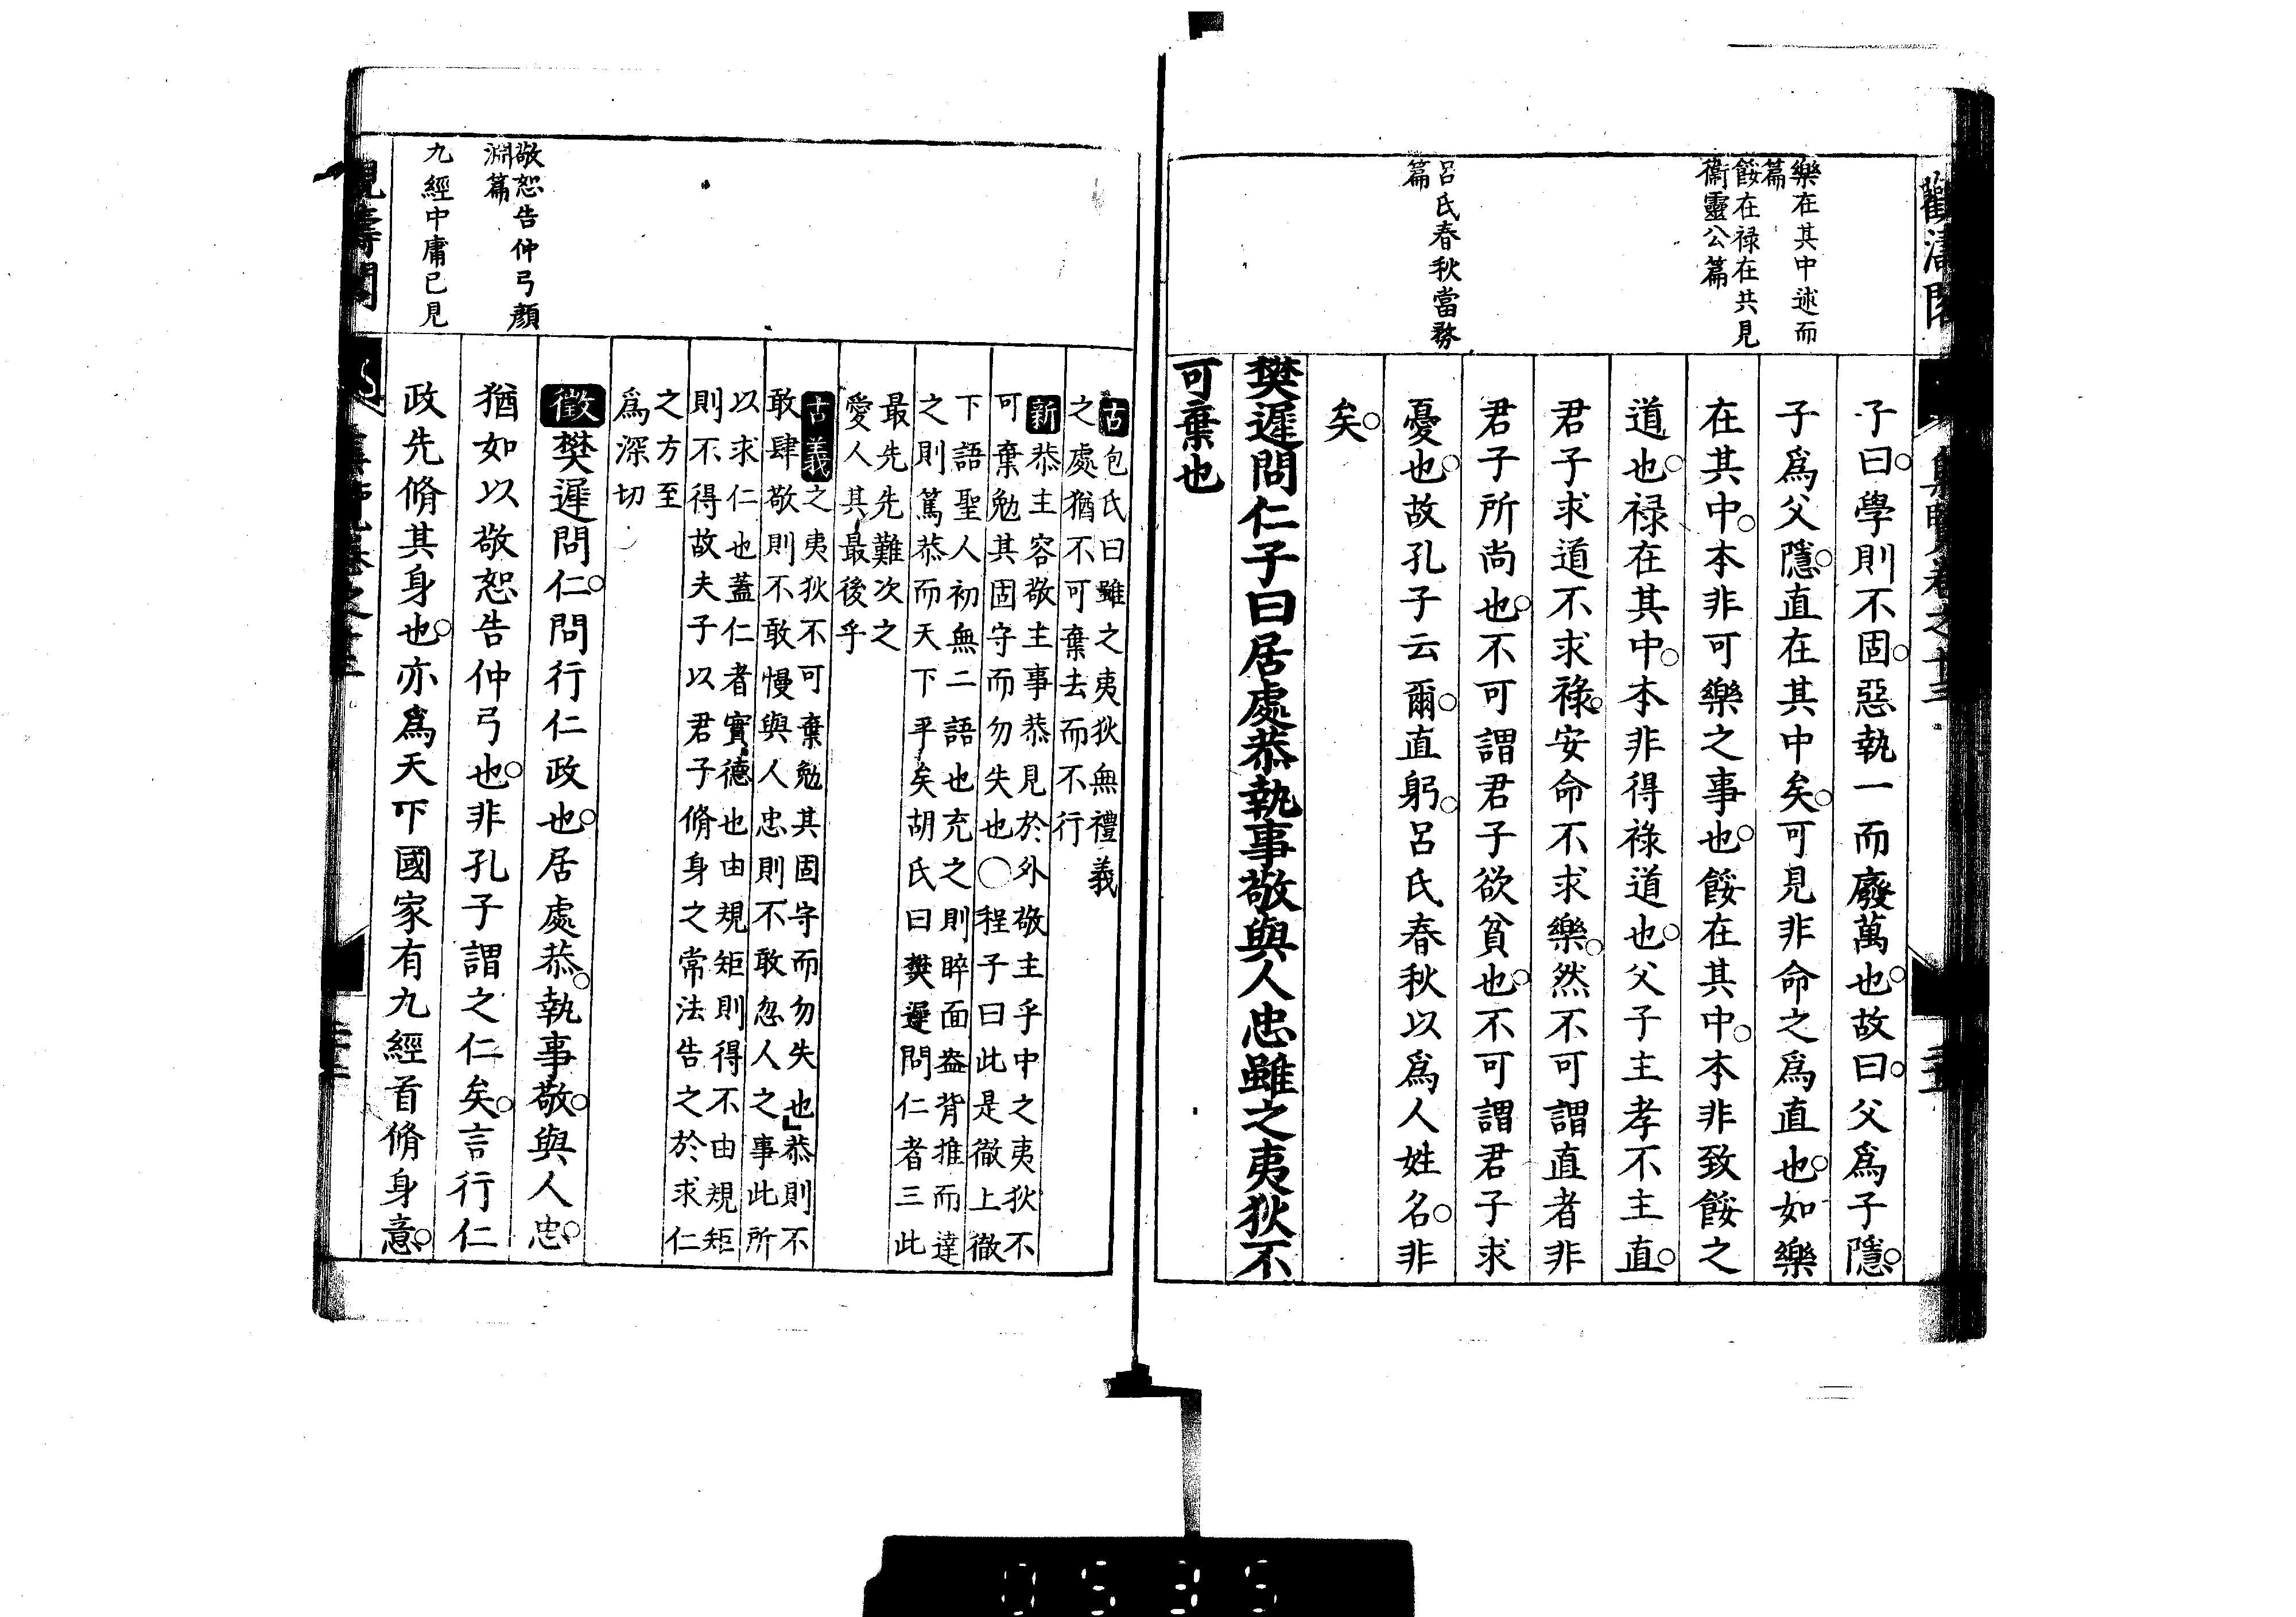 樂在其中述而
篇
餒在祿在共見
衞靈公篇
呂氏春秋當務
篇
子曰學則不固惡執一而廢萬也故曰父爲子隱
子爲父隱直在其中矣可見非命之爲直也如樂
在其中本非可樂之事也餒在其中本非致餒之
道也祿在其中本非得祿道也父子主孝不主直
君子求道不求祿安命不求樂然不可謂直者非
君子所尚也不可謂君子欲貧也不可謂君子求
憂也故孔子云爾直躬呂氏春秋以爲人姓名非
矣
樊遲問仁子曰居處恭執事敬與人忠雖之夷狄不
可棄也
敬恕告仲弓顏
淵篇
九經中庸已見
古包氏曰雖之夷狄無禮義
之處猶不可棄去而不行
新恭主容敬主事恭見於外敬主乎中之夷狄不
可棄勉其固守而勿失也○程子曰此是徹上徹
下語聖人初無二語也充之則睟面盎背推而達
之則篤恭而天下平矣胡氏曰樊遲問仁者三此
最先先難次之
愛人其最後乎
古義之夷狄不可棄勉其固守而勿失也恭則不
敢肆敬則不敢慢與人忠則不敢忽人之事此所
以求仁也蓋仁者實德也由規矩則得不由規矩
則不得故夫子以君子脩身之常法告之於求仁
之方至
爲深切
徵樊遲問仁問行仁政也居處恭執事敬與人忠
猶如以敬恕告仲弓也非孔子謂之仁矣言行仁
政先脩其身也亦爲天下國家有九經首脩身意